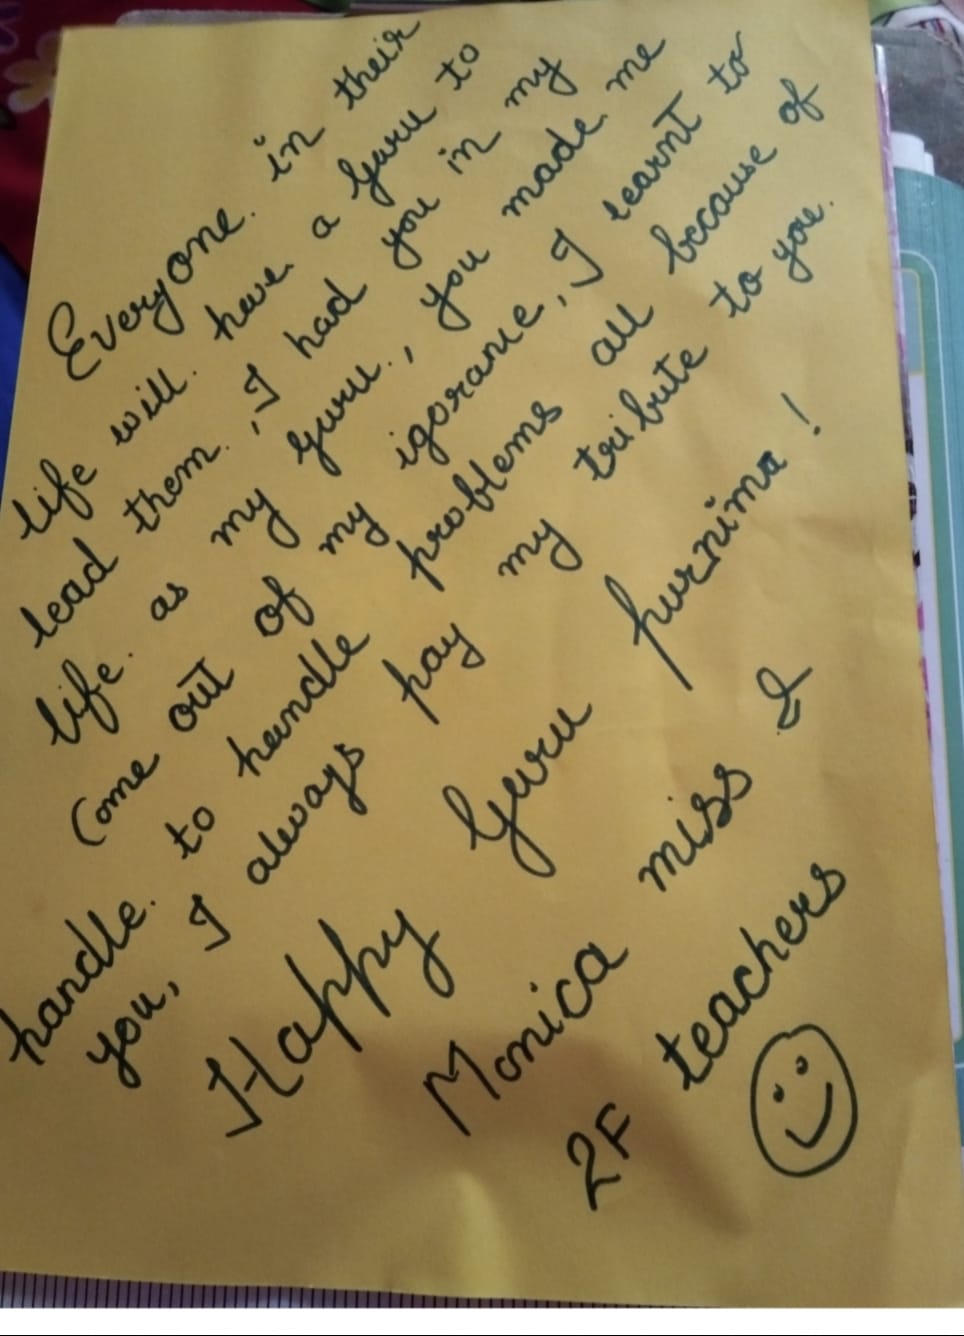 Everyone. in their
life will. have a Guru to
lead them., I had you in my
life. as my guru., you made me
Come out of my igorance, I learnt to
handle. to handle problems all because of
you, I always pay my tribute to you.
Happy Guru purnima!
Monica miss &
2F teachers